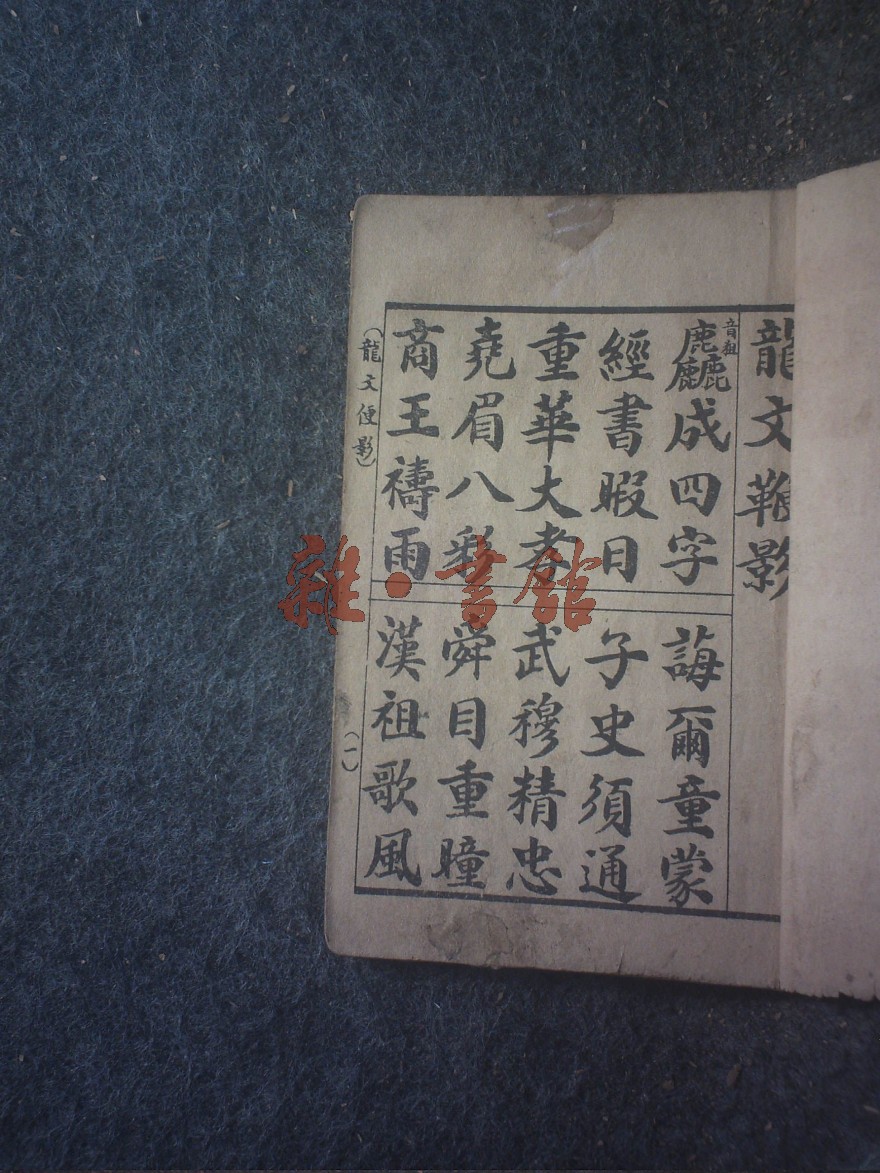 龍文鞭影
音粗
麤成四字 誨爾童蒙
經書暇日 子史須通
重華大孝 武穆精忠
堯眉八彩 舜目重瞳
商王禱雨 漢祖歌風
(龍文便影)
(一)
雜·書館